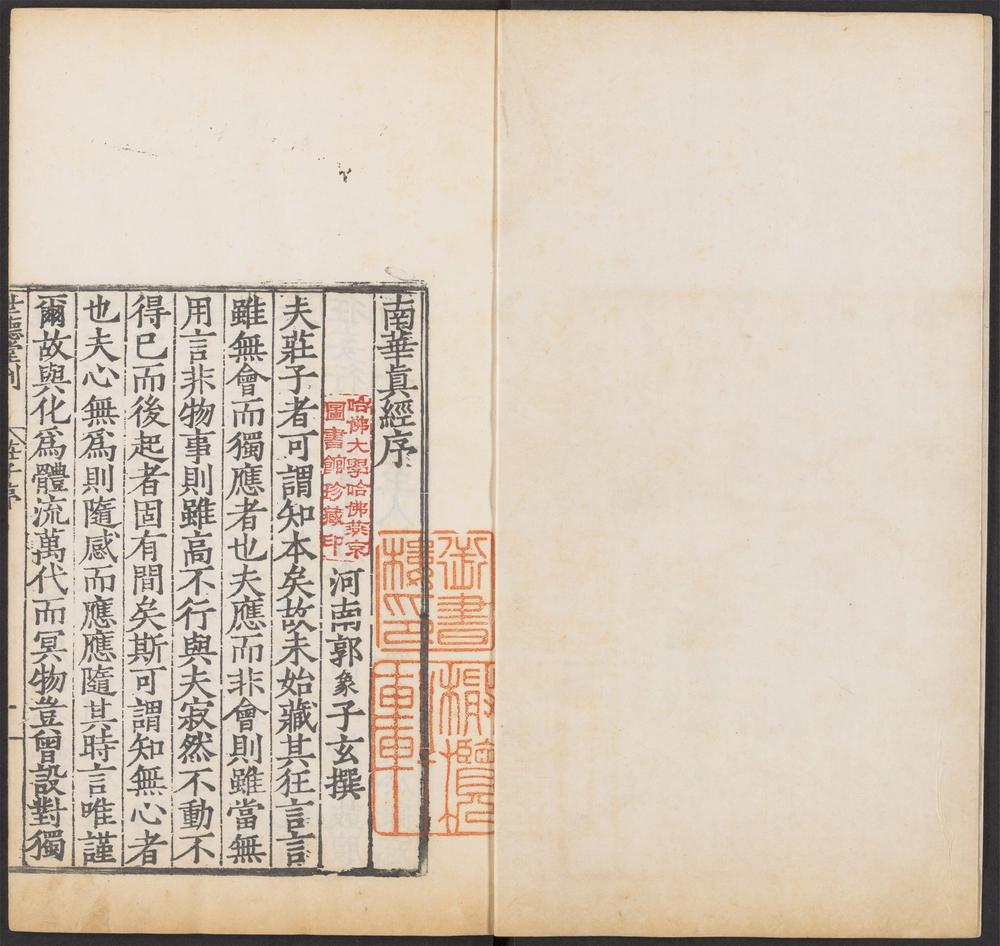 南華真經序
河南郭象子玄撰
夫莊子者可謂知本矣故未始藏其狂言言
雖無會而獨應者也夫應而非會則雖當無
用言非物事則雖高不行與夫寂然不動不
得已而後起者固有間矣斯可謂知無心者
也夫心無爲則隨感而應應隨其時言唯謹
爾故與化爲體流萬代而冥物豈曾設對獨
世德堂刊
莊子序
一
哈佛大學哈佛燕京
圖書館珍藏印